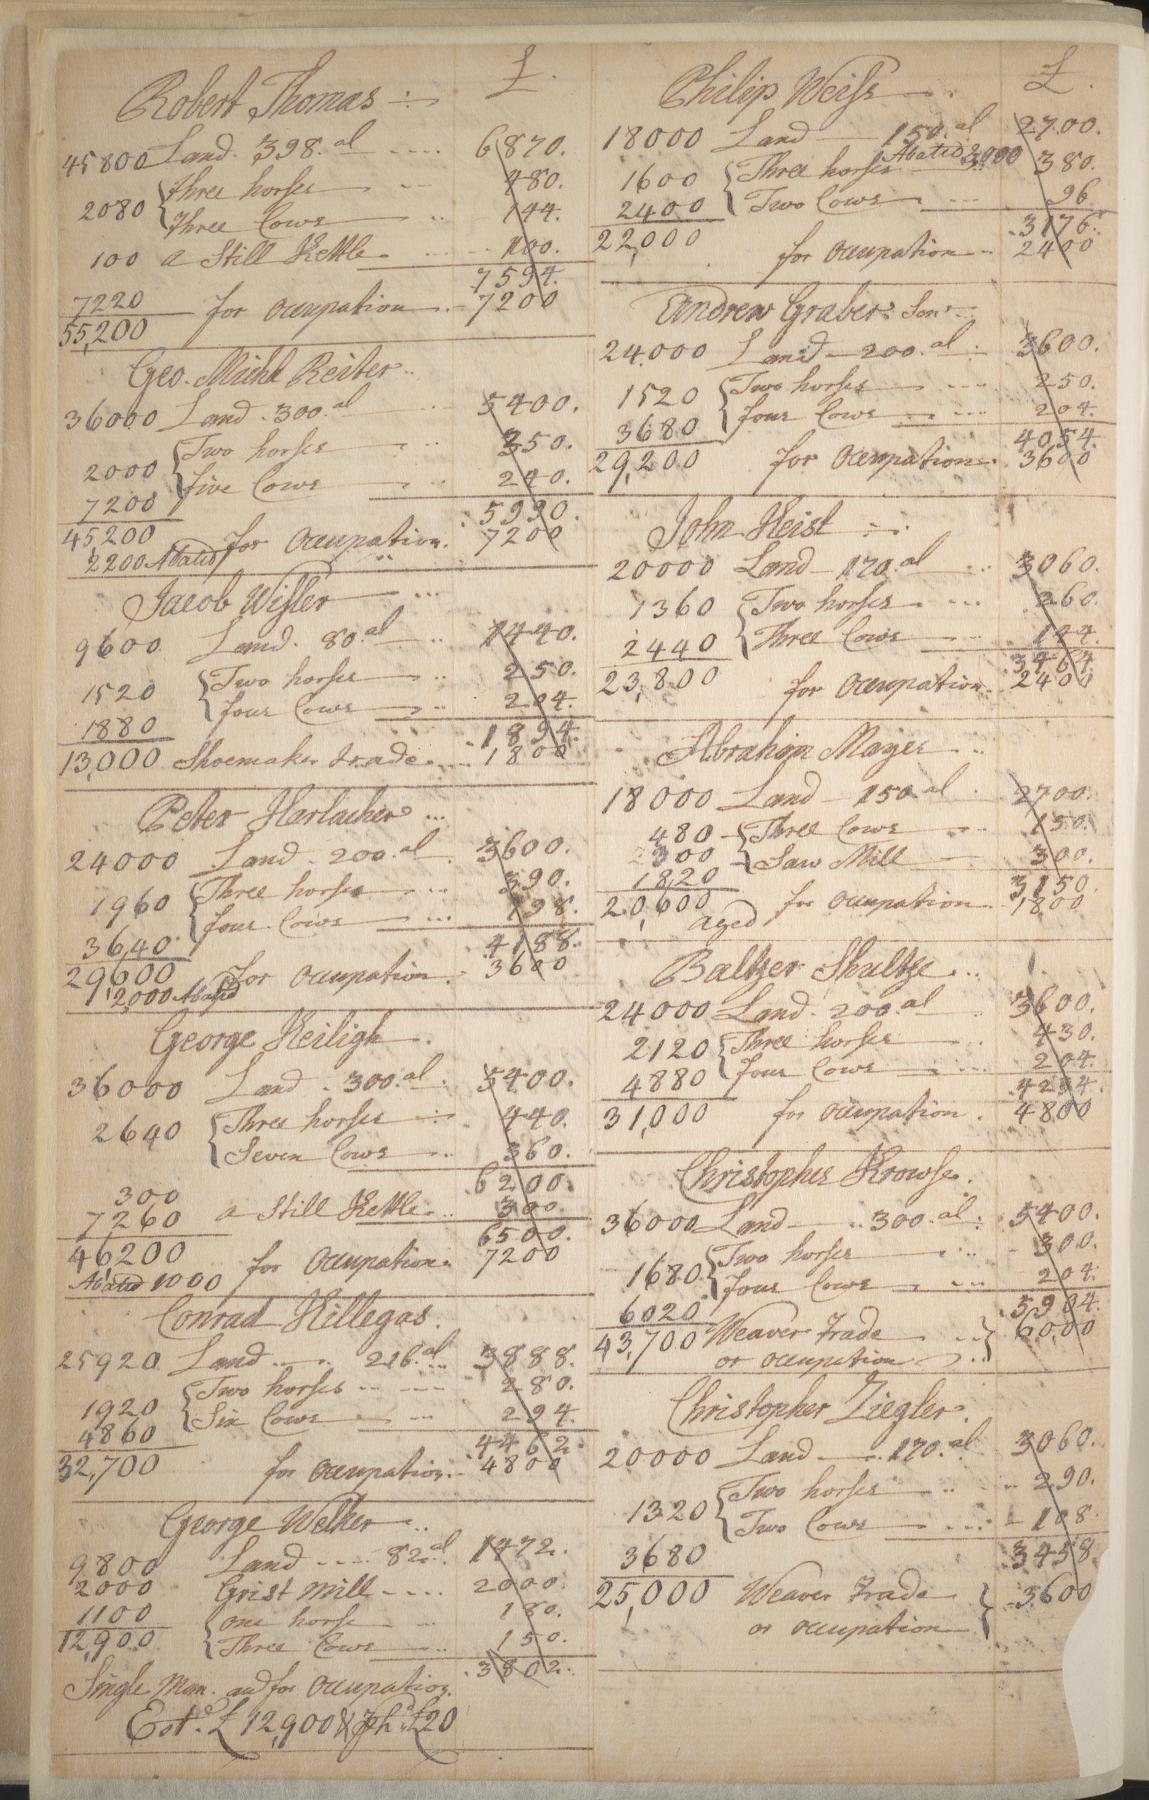 £.
Robert Thomas
45800 Land. 398. al 6870.
2080 Three horses 480.
Three Cows 144.
100 a Still Kettle 100.
7594.
7220 for Occupation 7200
55,200
Geo. Michl Reiter
36000 Land. 300. al 5400.
2000 Two horses 350.
five Cows 240.
7200 5990.
45,200 for Occupation. 7200
2200 Abated
Jacob Wisler
9600 Land. 80. al 1440.
1520 Two horses 250.
four Cows 204.
1880 1894.
13,000 Shoemaker trade 1800
Peter Harlacher
24000 Land - 200. al 3600.
1960 Three horses 390.
four Cows 198.
3640 4188.
29600 for Occupation 3600
2,000 Abated
George Heiligh
36000 Land - 300. al 5400.
2640 Three horses 440.
Seven Cows 360.
6200.
300 a Still Kettle 300.
7260 6500.
46200 for Occupation 7200
Abated 1000
Conrad Hillegas.
25920 Land 216. al 3888.
1920 Two horses 280.
Six Cows 294.
4860 4462.
32,700 for Occupation. 4800
George Welker
9800 Land 82. al 1472.
2000 Grist Mill 2000.
1100 one horse 180.
12,900 Three Cows 150.
3802.
Single Man. and for Occupation.
Est. £ 12,900 & £20
£.
Philip Weiss
18000 Land 150. al 2700.
Abated 2000
1600 Three horses 380.
2400 Two Cows 96
22,000 3176.
for Occupation 2400
Andrew Graber Senr
24000 Land - 200. al 3600.
1520 Two horses 250.
four Cows 204.
3680 4054.
29,200 for Occupation 3600
John Heist
20000 Land - 170. al 3060.
1360 Two horses 260.
2440 Three Cows 144.
3464.
23,800 for Occupation 2400
Abraham Mayer
18000 Land - 150. al 2700.
480 Three Cows 150.
300 Saw Mill 300.
1820 3150.
20,600 for Occupation 1800
aged
Baltzer Shultze
24000 Land - 200. al 3600.
2120 Three horses 430.
4880 four Cows 204.
4234.
31,000 for Occupation. 4800
Christopher Krowse.
36000 Land 300. al 5400.
1680 Two horses 300.
four Cows 204.
6020 5904.
43,700 Weaver Trade 6000
or occupation
Christopher Ziegler.
20000 Land 170. al 3060.
1320 Two horses 290.
Two Cows 108.
3680 3458.
25,000 Weaver Trade 3600
or occupation